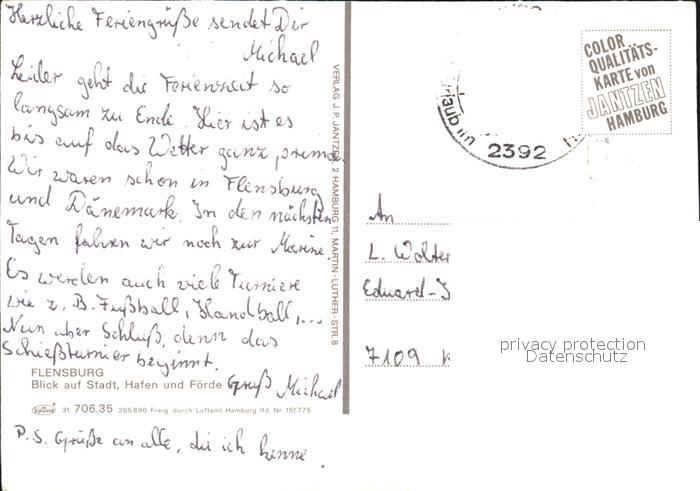 Herzliche Feriengrüße sendet Dir
Michael
Leider geht die Ferienzeit so
langsam zu Ende. Hier ist es
bis auf das Wetter ganz prima.
Wir waren schon in Flensburg
und Dänemark. In den nächsten
Tagen fahren wir noch zur Marine.
Es werden auch viele Turniere
wie z. B. Fußball, Handball,...
Nun aber Schluß, denn das
Schießturnier beginnt.
Gruß Michael
FLENSBURG
Blick auf Stadt, Hafen und Förde
31. 706.35 265 690 Freig. durch Luftamt Hamburg lfd. Nr. 151775
P.S. Grüße an alle, die ich kenne.
VERLAG J. P. JANTZEN, 2 HAMBURG 11, MARTIN-LUTHER-STR. 8
COLOR
QUALITÄTS-
KARTE von
JANTZEN
HAMBURG
2392
An
L. Wolter
Eduard-
7109 K
privacy protection
Datenschutz